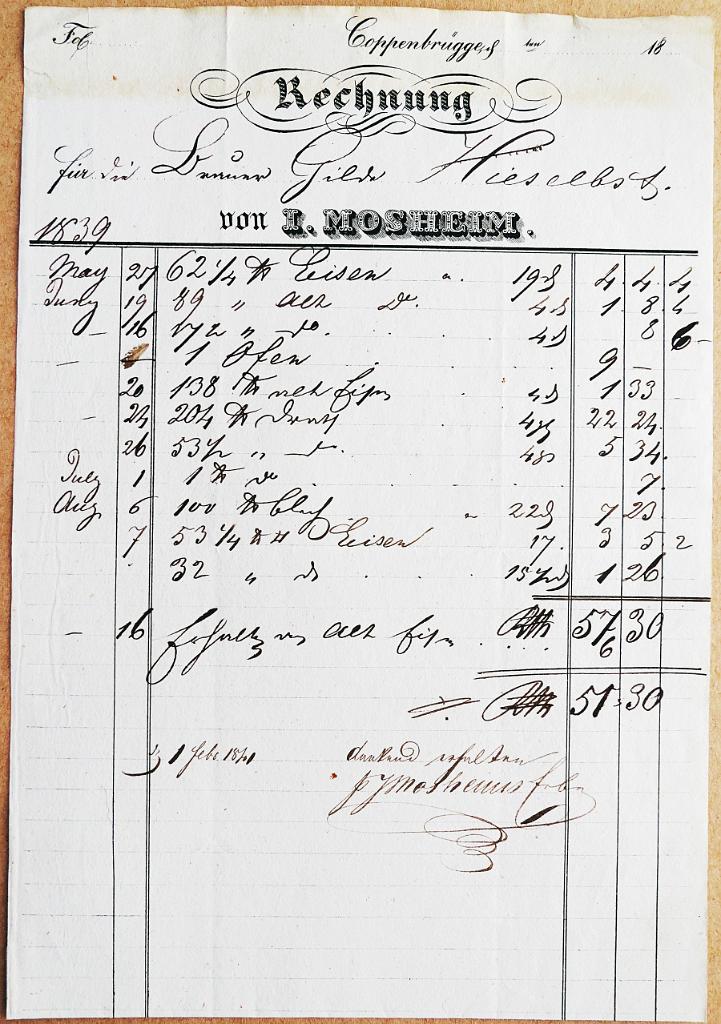 Fol. Coppenbrügge, den 18
Rechnung
für die Brauer Gilde Hieselbst.
von I. MOSHEIM.
1839
May 27 62 1/4 ℔ Eisen " 19 ₰ 4. 4. 4
Juny 19 89 " alt do. 4 ₰ 1 8 4
– 16 172 " do. 4 ₰ 8 6 –
– 1 Ofen 9 –
20 138 ℔ alt Eisen 4 ₰ 1 33
– 24 204 ℔ 22 24
26 53 1/2 " do. 5 34
July 1 1 ℔ do 7.
Aug. 6 100 ℔ " 22 ₰ 7 23
7 53 1/4 ℔ Eisen 17. 3 5 2
32 " do 15 1/2 ₰ 1 26
– 16 57 30
Erhalten an alt Eisen 6
51 30
1 Febr. 1841 dankend erhalten
J Mosheims Erben